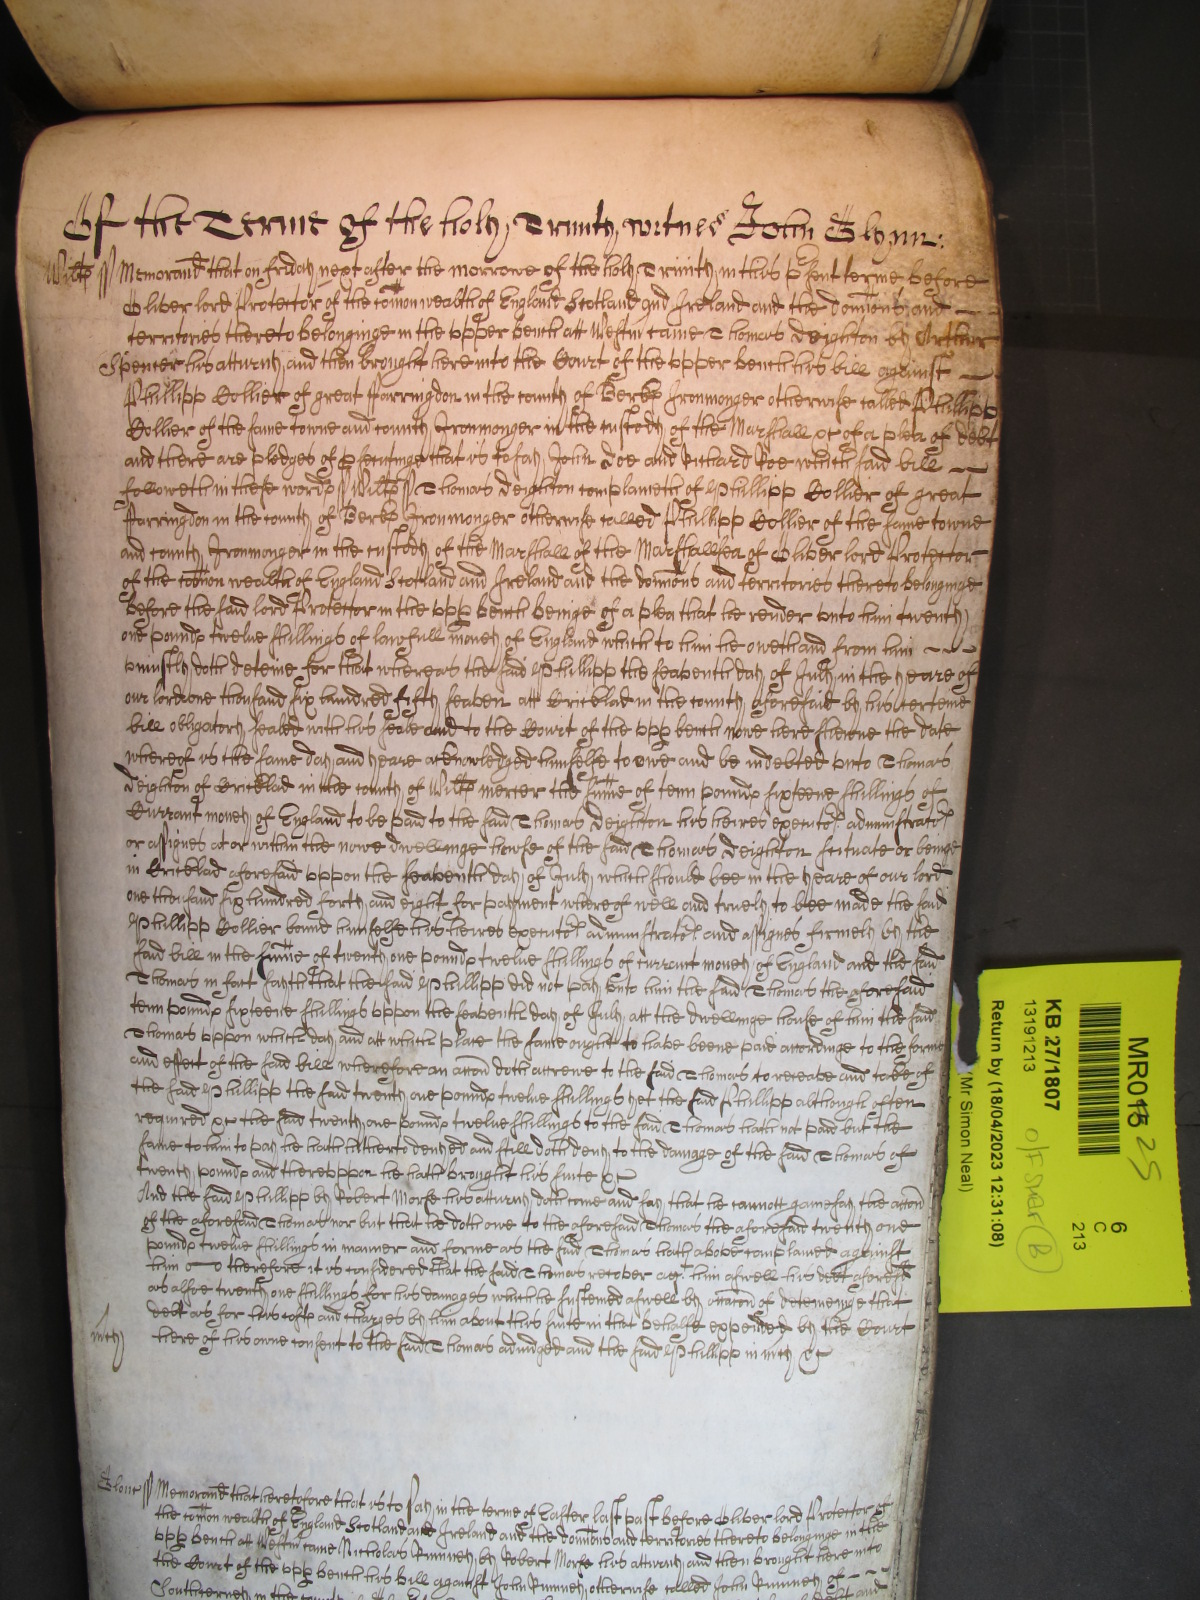 Of the Terme of the holy Trinity witnes John Glynn:
Wiltς ss Memorand that on friday next after the morrowe of the holy Trinity in this pſent terme before
Oliver lord Protector of the comon wealth of England Scotland and Ireland and the dominons and
territories thereto belonginge in the upper bench att Westm came Thomas Deighton by Arthur
Spencer his atturny and then brought here into the Court of the upper bench his bill against
Phillipp Collier of great ffarringdon in the county of Berkς Ironmonger otherwise called Phillipp
Collier of the same towne and county Ironmonger in the custody of the Marshall &c of a plea of debt
and there are pledges of psecutinge that is to say John Doe and Richard Roe which said bill
followeth in these wordς ss Wiltς ss Thomas Deighton complaineth of Phillipp Collier of great
ffarringdon in the county of Berkς Ironmonger otherwise called Phillipp Collier of the same towne
and county Ironmonger in the custody of the Marshall of the Marshallsea of Oliver lord Protector
of the comon wealth of England Scotland and Ireland and the dominons and territories thereto belonginge
before the said lord Protector in the upp bench beinge of a plea that he render unto him twenty
one poundς twelve shillings of lawfull money of England which to him he oweth and from him
uniustly doth deteine for that whereas the said Phillipp the seaventh day of July in the yeare of
our lord one thousand six hundred fifty seaven att Cricklad in the county aforesaid by his certeine
bill obligatory sealed with his seale and to the Court of the upp bench nowe here shewne the date
whereof is the same day and yeare acknowledged himselfe to owe and be indebted unto Thomas
Deighton of Cricklad in the county of Wiltς mercer the sume of tenn poundς sixteene shillings of
Currant money of England to be paid to the said Thomas Deighton his heires executors administrators
or assignes at or within the nowe dwellinge howse of the said Thomas Deighton scituate or beinge
in Cricklad aforesaid uppon the seaventh day of July which should bee in the yeare of our lord
one thousand six hundred forty and eight for payment whereof well and truely to bee made the said
Phillipp Collier bound himselfe his heires executors administrators and assignes firmely by the
said bill in the sume of twenty one poundς twelve shillings of currant money of England and the said
Thomas in fact sayth that the said Phillipp did not pay unto him the said Thomas the aforesaid
tenn poundς sixteene shillings uppon the seaventh day of July att the dwellinge house of him the said
Thomas uppon which day and att which place the same ought to have beene paid accordinge to the forme
and effect of the said bill wherefore an accon doth accrewe to the said Thomas to receave and take of
the said Phillipp the said twenty one poundς twelve shillings yet the said Phillipp although often
required &c the said twenty one poundς twelve shillings to the said Thomas hath not paid but the
same to him to pay he hath hitherto denyed and still doth deny to the damage of the said Thomas of
twenty poundς and thereuppon he hath brought his suite &c
And the said Phillipp by Robert Morse his atturny doth come and say that he cannott gainesay the accon
of the aforesaid Thomas nor but that he doth owe to the aforesaid Thomas the aforesaid twenty one
poundς twelve shillings in manner and forme as the said Thomas hath above complained against
him Therefore it is considered that the said Thomas recover agt him aswell his debt aforesd
as alsoe twenty one shillings for his damages which he susteined aswell by occacon of deteininge that
debt as for his costς and charges by him about his suite in that behalfe expended by the Court
mcy here of his owne consent to the said Thomas adiudged and the said Phillipp in mcy &c
Glouc ss Memorand that heretofore that is to say in the terme of Easter last past before Oliver lord Protector of
the comon wealth of England Scotland and Ireland and the dominons and territories thereto belonginge in the
upp bench at Westm came Nicholas Pumney by Robert Morse his atturny and then brought here into
the Court of the upp bench his bill against John Pumney otherwise called John Pumney of
in the
MR015 25
KB 27/1807
13191213
O/F Shelf B
Return by (18/04/2023 12:31:08)
(Mr Simon Neal)
6
C
213